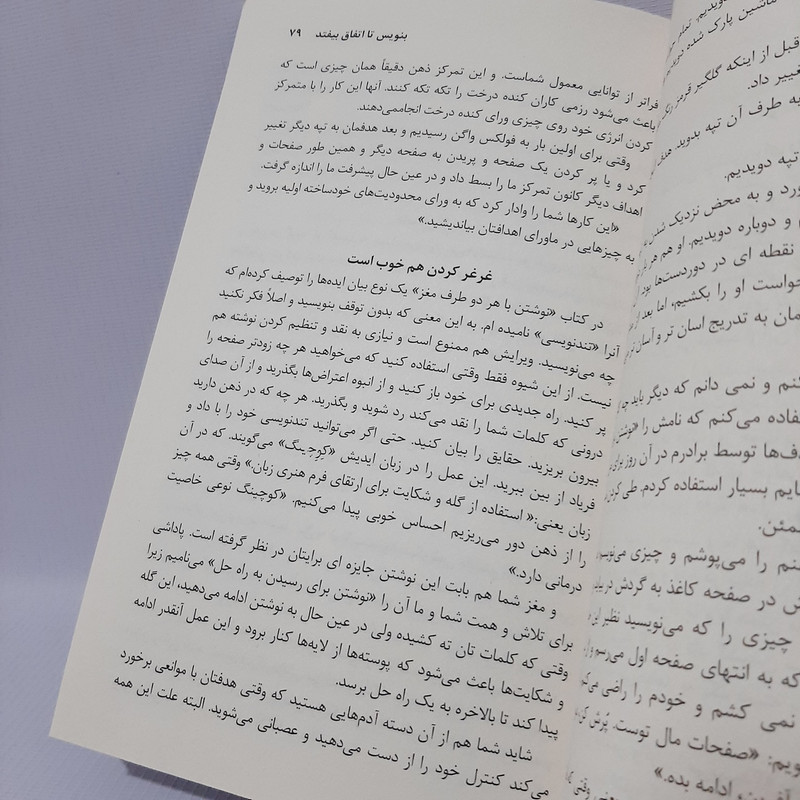 بنویس تا اتفاق بیفتد ۷۹
فراتر از توانایی معمول شماست. و این تمرکز ذهن دقیقاً همان چیزی است که
باعث می‌شود رزمی کاران کنده درخت را تکه تکه کنند. آنها این کار را با متمرکز
کردن انرژی خود روی چیزی ورای کنده درخت انجام‌می‌دهند.
وقتی برای اولین بار به فولکس واگن رسیدیم و بعد هدفمان به تپه دیگر تغییر
کرد و یا پر کردن یک صفحه و پریدن به صفحه دیگر و همین طور صفحات و
اهداف دیگر کانون تمرکز ما را بسط داد و در عین حال پیشرفت ما را اندازه گرفت.
«این کارها شما را وادار کرد که به ورای محدودیت‌های خودساخته اولیه بروید و
به چیزهایی در ماورای اهدافتان بیاندیشید.»
غرغر کردن هم خوب است
در کتاب «نوشتن با هر دو طرف مغز» یک نوع بیان ایده‌ها را توصیف کرده‌ام که
آنرا «تندنویسی» نامیده ام. به این معنی که بدون توقف بنویسید و اصلاً فکر نکنید
چه می‌نویسید. ویرایش هم ممنوع است و نیازی به نقد و تنظیم کردن نوشته هم
نیست. از این شیوه فقط وقتی استفاده کنید که می‌خواهید هر چه زودتر صفحه را
پر کنید. راه جدیدی برای خود باز کنید و از انبوه اعتراض‌ها بگذرید و از آن صدای
درونی که کلمات شما را نقد می‌کند رد شوید و بگذرید. هر چه که در ذهن دارید
بیرون بریزید. حقایق را بیان کنید. حتی اگر می‌توانید تندنویسی خود را با داد و
فریاد از بین ببرید. این عمل را در زبان ایدیش «کِوِچینگ» می‌گویند. که در آن
زبان یعنی:« استفاده از گله و شکایت برای ارتقای فرم هنری زبان.» وقتی همه چیز
را از ذهن دور می‌ریزیم احساس خوبی پیدا می‌کنیم. «کوچینگ نوعی خاصیت
درمانی دارد.»
و مغز شما هم بابت این نوشتن جایزه ای برایتان در نظر گرفته است. پاداشی
برای تلاش و همت شما و ما آن را «نوشتن برای رسیدن به راه حل» می‌نامیم زیرا
وقتی که کلمات تان ته کشیده ولی در عین حال به نوشتن ادامه می‌دهید، این گله
و شکایت‌ها باعث می‌شود که پوسته‌ها از لایه‌ها کنار برود و این عمل آنقدر ادامه
پیدا کند تا بالاخره به یک راه حل برسد.
شاید شما هم از آن دسته آدم‌هایی هستید که وقتی هدفتان با موانعی برخورد
می‌کند کنترل خود را از دست می‌دهید و عصبانی می‌شوید. البته علت این همه
دویدیم. تمام
ماشین پارک شده
قبل از اینکه گلگیر قرمز رنگ
تغییر داد.
به طرف آن تپه بدوید.
تپه دویدیم.
ورد و به محض نزدیک شدن
و دوباره دویدیم. او هم هر بار
نقطه ای در دوردست‌ها بود
خواست او را بکشیم، اما بعد از
مان به تدریج اسان تر و آسان
کنم و نمی دانم که دیگر باید چه
فاده می‌کنم که نامش را «نوشتن
دف‌ها توسط برادرم در آن روز برای
ایم بسیار استفاده کردم. طی کردن
مئن.
نم را می‌پوشم و چیزی می‌نویسم
ش در صفحه کاغذ به گردش در
چیزی را که می‌نویسید نظیر این
که به انتهای صفحه اول می‌رسم و
نمی کشم و خودم را راضی می‌کنم
ویم: «صفحات مال توست. پُرش کن
آفرین، ادامه بده.»